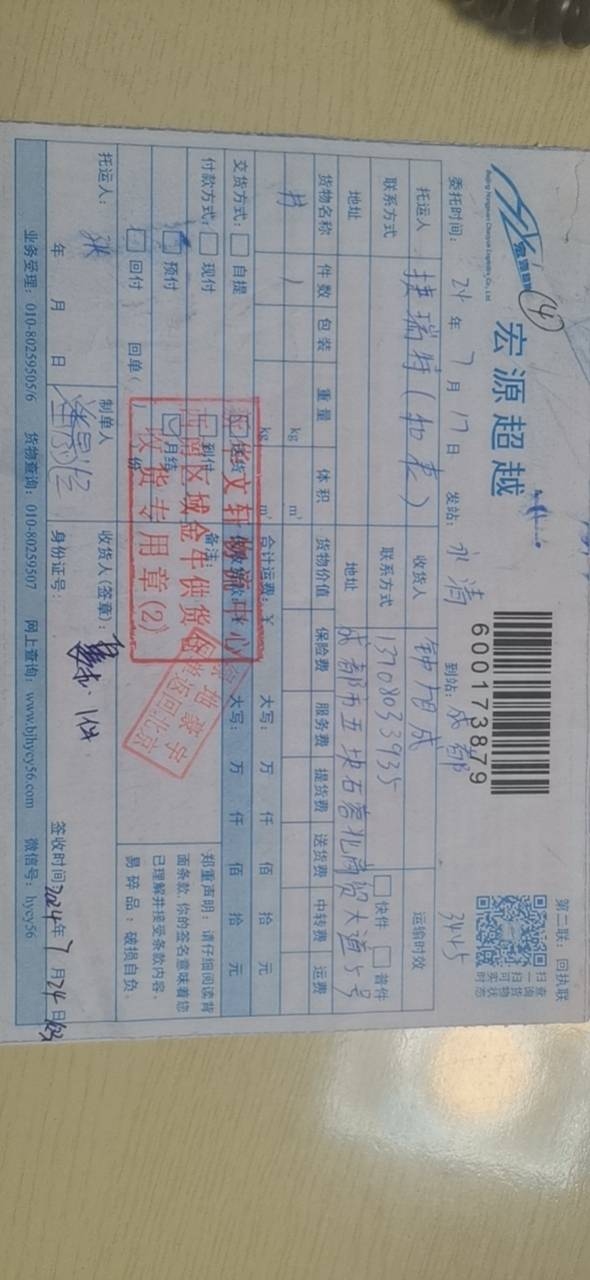 宏源超越
Beijing Hongyuan Chaoyue Logistics Co., Ltd
④
600173879
第二联：回执联
扫一扫可查询货物实时状态
委托时间：24年7月17日 发站：永清 到站：成都 3445
托运人 收货人 钟旭成 运输时效
联系方式 联系方式 13708033935 快件 普件
地址 地址 成都市五块石蓉北商贸大道5号
货物名称 件数 包装 重量 体积 货物价值 保险费 服务费 提货费 送货费 中转费 运费
书 1 kg m³
kg m³ 合计运费：¥ 大写： 万 仟 佰 拾 元
交货方式： 自提 送货 大写： 万 仟 佰 拾 元
付款方式： 现付 到付 备注：
预付 月结
回付 回单（ ）份
郑重声明：请仔细阅读背
面条款，你的签名意味着您
已理解并接受条款内容。
易碎品：破损自负。
文轩
区域金牛供货
收货专用章(2)
托运人： 制单人 收货人(签章)： 1件
年 月 日 身份证号： 签收时间2024年7月24日
业务受理：010-80259505/6 货物查询：010-80259507 网上查询：www.bjhycy56.com 微信号：hycy56